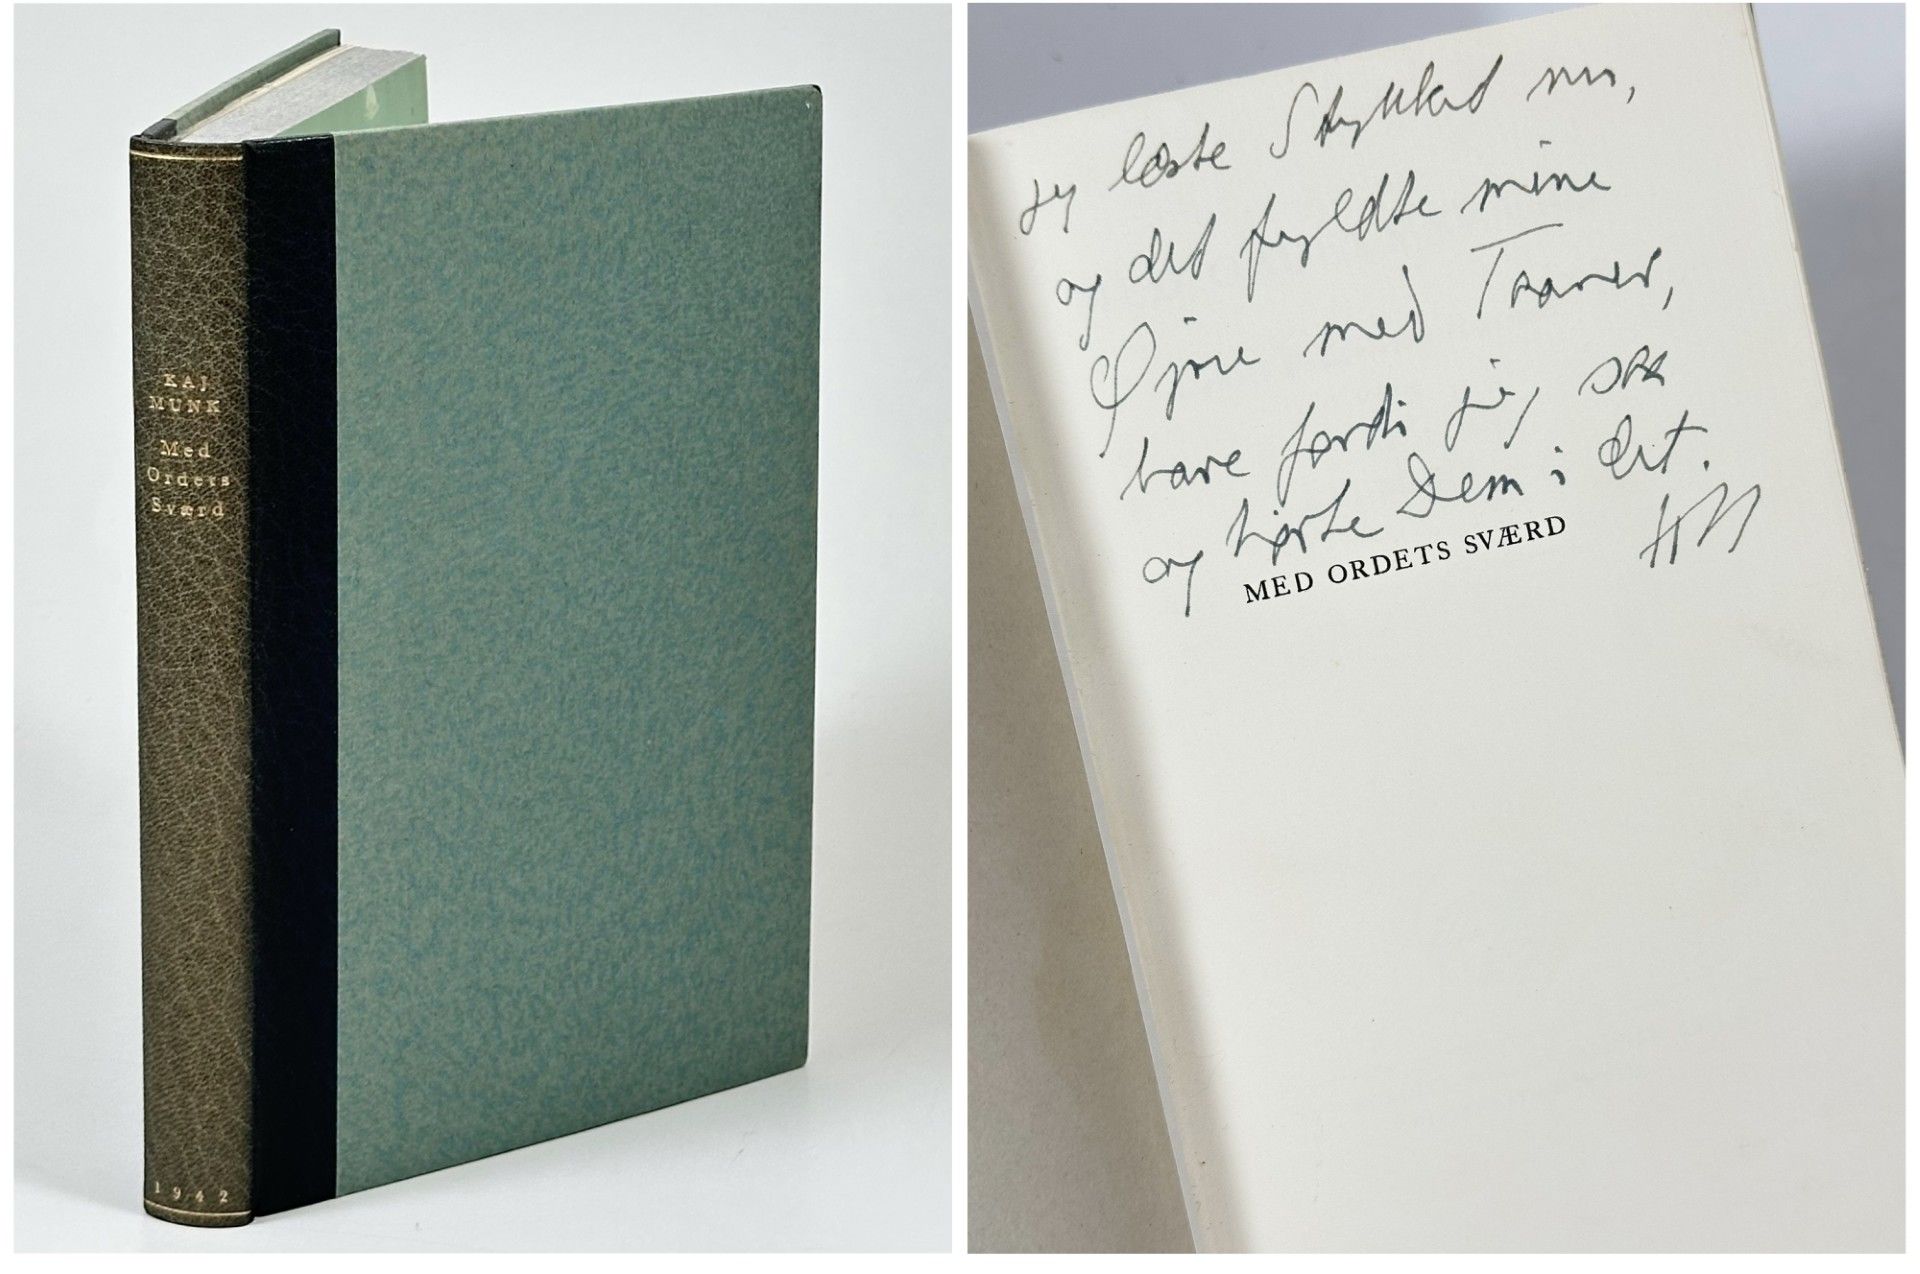 KAJ
MUNK
Med
Ordets
Sværd
1942
Jeg læste Stykket nu,
og det fyldte mine
Øjne med Taarer,
bare fordi jeg saa
og hørte Dem i det.
MED ORDETS SVÆRD